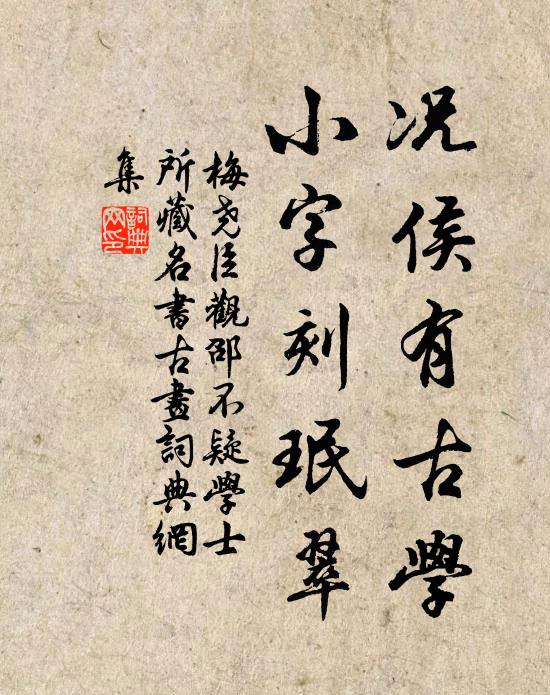 况侯有古學
小字刻珉翠
梅堯臣觀邵不疑學士
所藏名書古畫詞典網
集
詞典网印